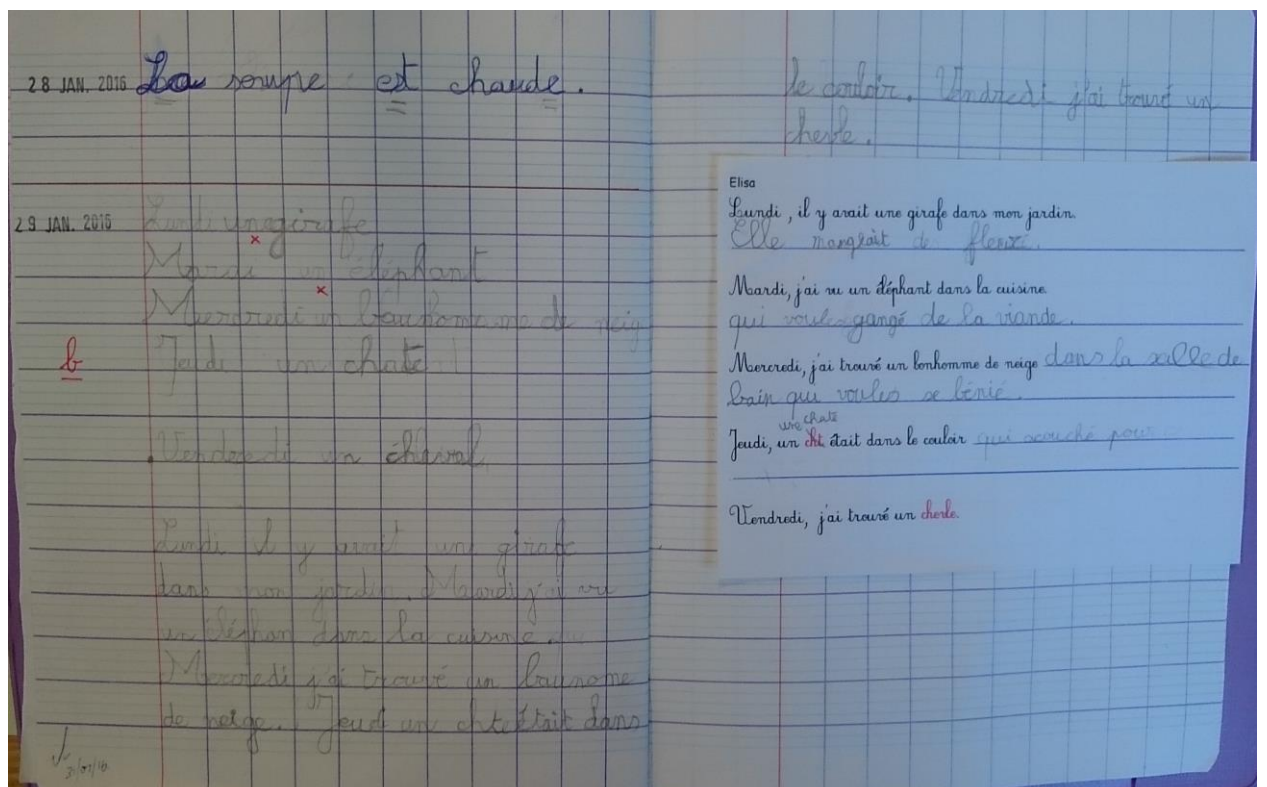 28 JAN. 2016 La soupe est chaude.
29 JAN. 2016 Lundi une girafe
x
Mardi un éléphant
x
Mercredi un bauhomme de neig
b Jeudi un chate
Vendredi un cheval
Lundi il y avait une girafe
dans mon jardin. Mardi j'ai vu
un éléphan dans la cuisine.
Mercredi j'ai trouvé un baunome
de neige. Jeudi un chte était dans
le couloir. Vendredi j'ai trouvé un
cherle.
Elisa
Lundi, il y avait une girafe dans mon jardin.
Elle mangeait de fleurs.
Mardi, j'ai vu un éléphant dans la cuisine.
qui voulez gangé de la viande.
Mercredi, j'ai trouvé un bonhomme de neige dans la salle de
bain qui voules se bénié.
une chate
Jeudi, un cht était dans le couloir qui acouché pour
Vendredi, j'ai trouvé un cherle.